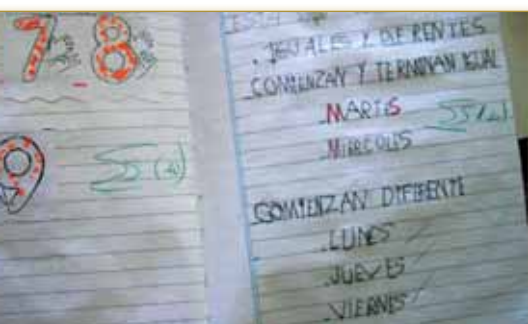 7 8
9
. IGUALES Y DIFERENTES
COMIENZAN Y TERMINAN IGUAL
MARTES
MIERCOLES
COMIENZAN DIFERENTE
.LUNES
.JUEVES
.VIERNES